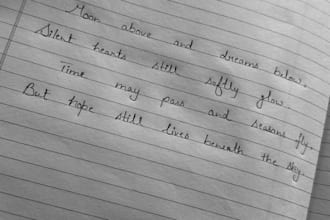 Moon above and dreams below.
Silent hearts still softly glow.
Time may pass and seasons fly.
But hope still lives beneath the sky.